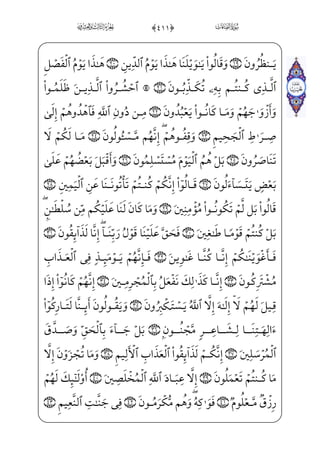 ﴿٤١١﴾
يَنظُرُونَ ۝١٩ وَقَالُوا۟ يَٰوَيْلَنَا هَٰذَا يَوْمُ ٱلدِّينِ ۝٢٠ هَٰذَا يَوْمُ ٱلْفَصْلِ
ٱلَّذِى كُنتُم بِهِۦ تُكَذِّبُونَ ۝٢١ ۞ ٱحْشُرُوا۟ ٱلَّذِينَ ظَلَمُوا۟
وَأَزْوَٰجَهُمْ وَمَا كَانُوا۟ يَعْبُدُونَ ۝٢٢ مِن دُونِ ٱللَّهِ فَٱهْدُوهُمْ إِلَىٰ
صِرَٰطِ ٱلْجَحِيمِ ۝٢٣ وَقِفُوهُمْ ۖ إِنَّهُم مَّسْـُٔولُونَ ۝٢٤ مَا لَكُمْ لَا
تَنَاصَرُونَ ۝٢٥ بَلْ هُمُ ٱلْيَوْمَ مُسْتَسْلِمُونَ ۝٢٦ وَأَقْبَلَ بَعْضُهُمْ عَلَىٰ
بَعْضٍ يَتَسَآءَلُونَ ۝٢٧ قَالُوٓا۟ إِنَّكُمْ كُنتُمْ تَأْتُونَنَا عَنِ ٱلْيَمِينِ ۝٢٨
قَالُوا۟ بَل لَّمْ تَكُونُوا۟ مُؤْمِنِينَ ۝٢٩ وَمَا كَانَ لَنَا عَلَيْكُم مِّن سُلْطَٰنٍۭ ۖ
بَلْ كُنتُمْ قَوْمًا طَٰغِينَ ۝٣٠ فَحَقَّ عَلَيْنَا قَوْلُ رَبِّنَآ ۖ إِنَّا لَذَآئِقُونَ ۝٣١
فَأَغْوَيْنَٰكُمْ إِنَّا كُنَّا غَٰوِينَ ۝٣٢ فَإِنَّهُمْ يَوْمَئِذٍ فِى ٱلْعَذَابِ
مُشْتَرِكُونَ ۝٣٣ إِنَّا كَذَٰلِكَ نَفْعَلُ بِٱلْمُجْرِمِينَ ۝٣٤ إِنَّهُمْ كَانُوٓا۟ إِذَا
قِيلَ لَهُمْ لَآ إِلَٰهَ إِلَّا ٱللَّهُ يَسْتَكْبِرُونَ ۝٣٥ وَيَقُولُونَ أَئِنَّا لَتَارِكُوٓا۟
ءَالِهَتِنَا لِشَاعِرٍ مَّجْنُونٍۭ ۝٣٦ بَلْ جَآءَ بِٱلْحَقِّ وَصَدَّقَ
ٱلْمُرْسَلِينَ ۝٣٧ إِنَّكُمْ لَذَآئِقُوا۟ ٱلْعَذَابِ ٱلْأَلِيمِ ۝٣٨ وَمَا تُجْزَوْنَ إِلَّا
مَا كُنتُمْ تَعْمَلُونَ ۝٣٩ إِلَّا عِبَادَ ٱللَّهِ ٱلْمُخْلَصِينَ ۝٤٠ أُو۟لَٰٓئِكَ لَهُمْ
رِزْقٌ مَّعْلُومٌ ۝٤١ فَوَٰكِهُ ۖ وَهُم مُّكْرَمُونَ ۝٤٢ فِى جَنَّٰتِ ٱلنَّعِيمِ ۝٤٣